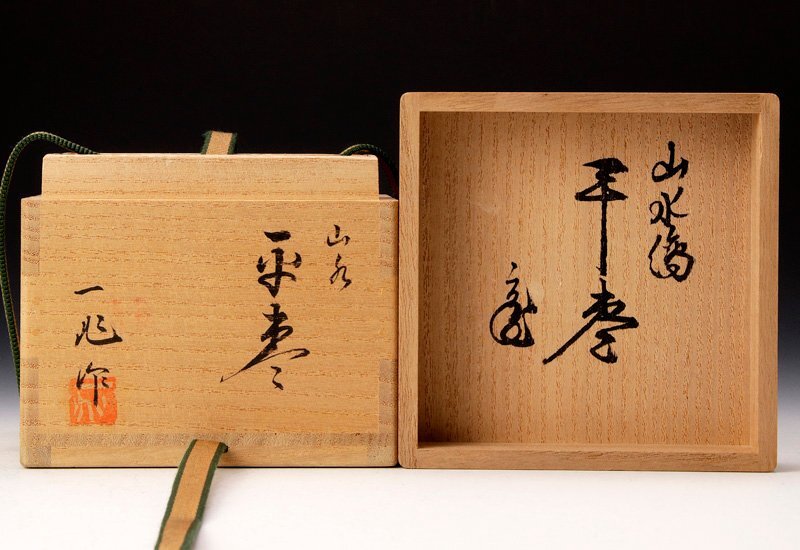 山水
平棗
一兆作
山水
平棗